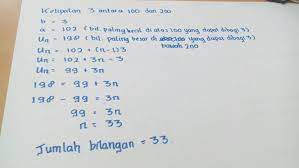 Kelipatan 3 antara 100 dan 200
b = 3
a = 102 (bil. paling kecil di atas 100 yang dapat dibagi 3)
Un = 198 (bil. paling besar di bawah 200 yang dapat dibagi 3)
Un = 102 + (n-1)3
Un = 102 + 3n - 3
Un = 99 + 3n
198 = 99 + 3n
198 - 99 = 3n
99 = 3n
n = 33
Jumlah bilangan = 33